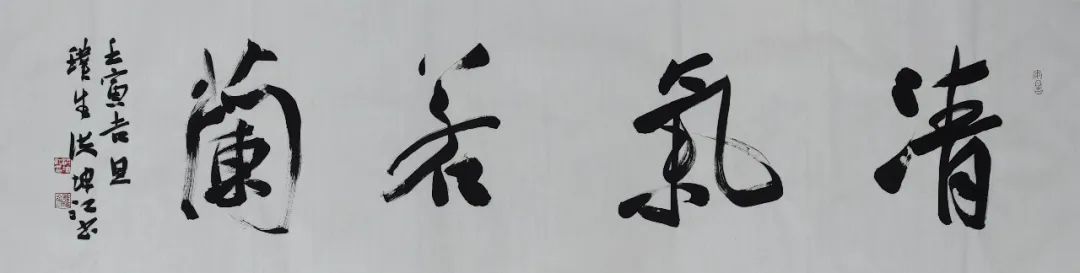 清氣若蘭
壬寅吉旦
璞生洪坤江書